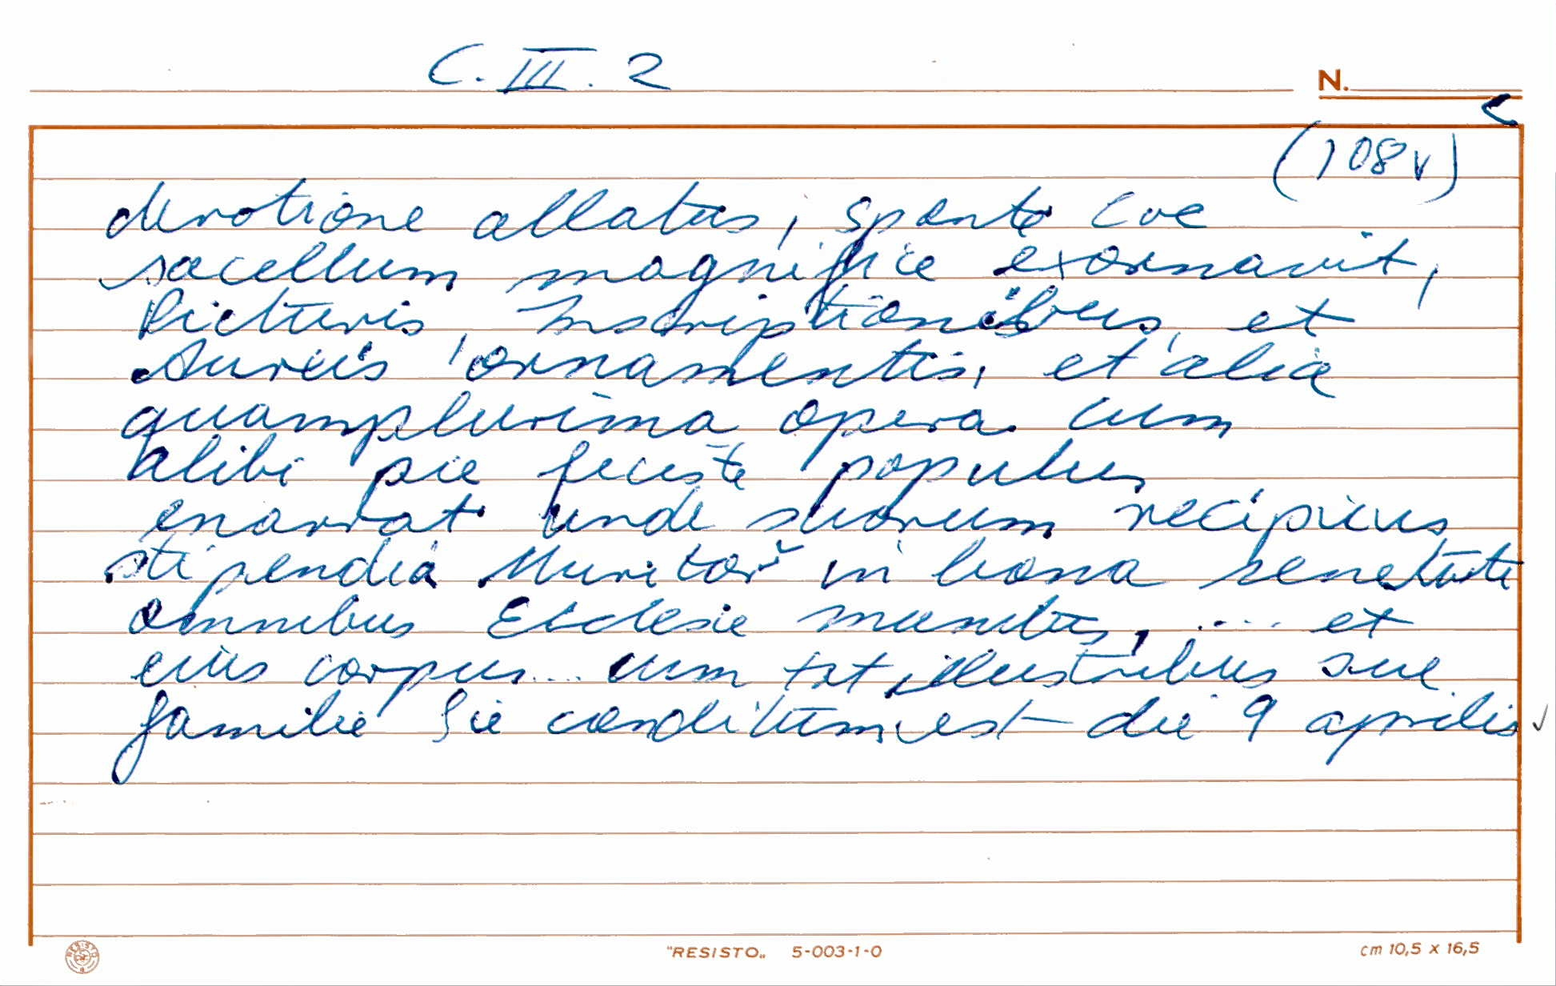 C. III. 2
N.
(108v)
devotione allatus, sponte
sacellum magnifice exornavit,
Picturis, Inscriptionibus, et
Aureis ornamentis, et alia
quamplurima opera cum
alibi pie feciste populus
enarrat unde suorum recipiens
stipendia in bona senectute
omnibus Ecclesie munitus, .... et
eius corpus ... cum tot illustribus sue
familie sic conditum est die 9 aprilis
"RESISTO„ 5-003-1-0
cm 10,5 x 16,5